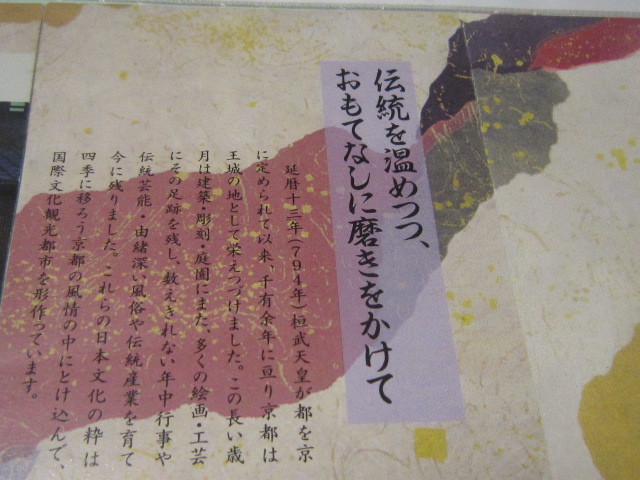 伝統を温めつつ、
おもてなしに磨きをかけて
延暦十三年(794年)桓武天皇が都を京
に定められて以来、千有余年に亘り京都は
王城の地として栄えつづけました。この長い歳
月は建築・彫刻・庭園にまた、多くの絵画・工芸
にその足跡を残し、数えきれない年中行事や
伝統芸能・由緒深い風俗や伝統産業を育て
今に残りました。これらの日本文化の粋は
四季に移ろう京都の風情の中にとけ込んで、
国際文化観光都市を形作っています。